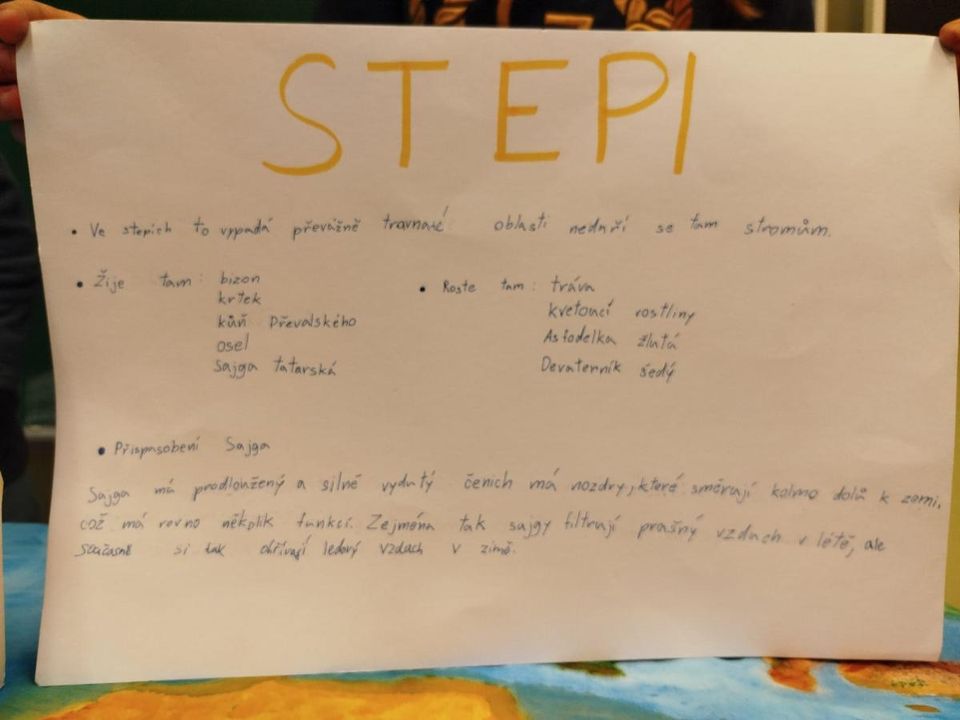 STEPI
• Ve stepích to vypadá převážně travnaté oblasti nedaří se tam stromům.
• Žije tam: bizon
krtek
kůň Převalského
osel
Sajga tatarská
• Roste tam: tráva
kvetoucí rostliny
Asfodelka žlutá
Devaterník šedý
• Přispasobení Sajga
Sajga má prodloužený a silně vydutý čenich má nozdry, které směrují kolmo dolů k zemi,
což má rovno několik funkcí. Zejména tak sajgy filtrují prašný vzduch v létě, ale
současně si tak ohřívají ledový vzduch v zimě.